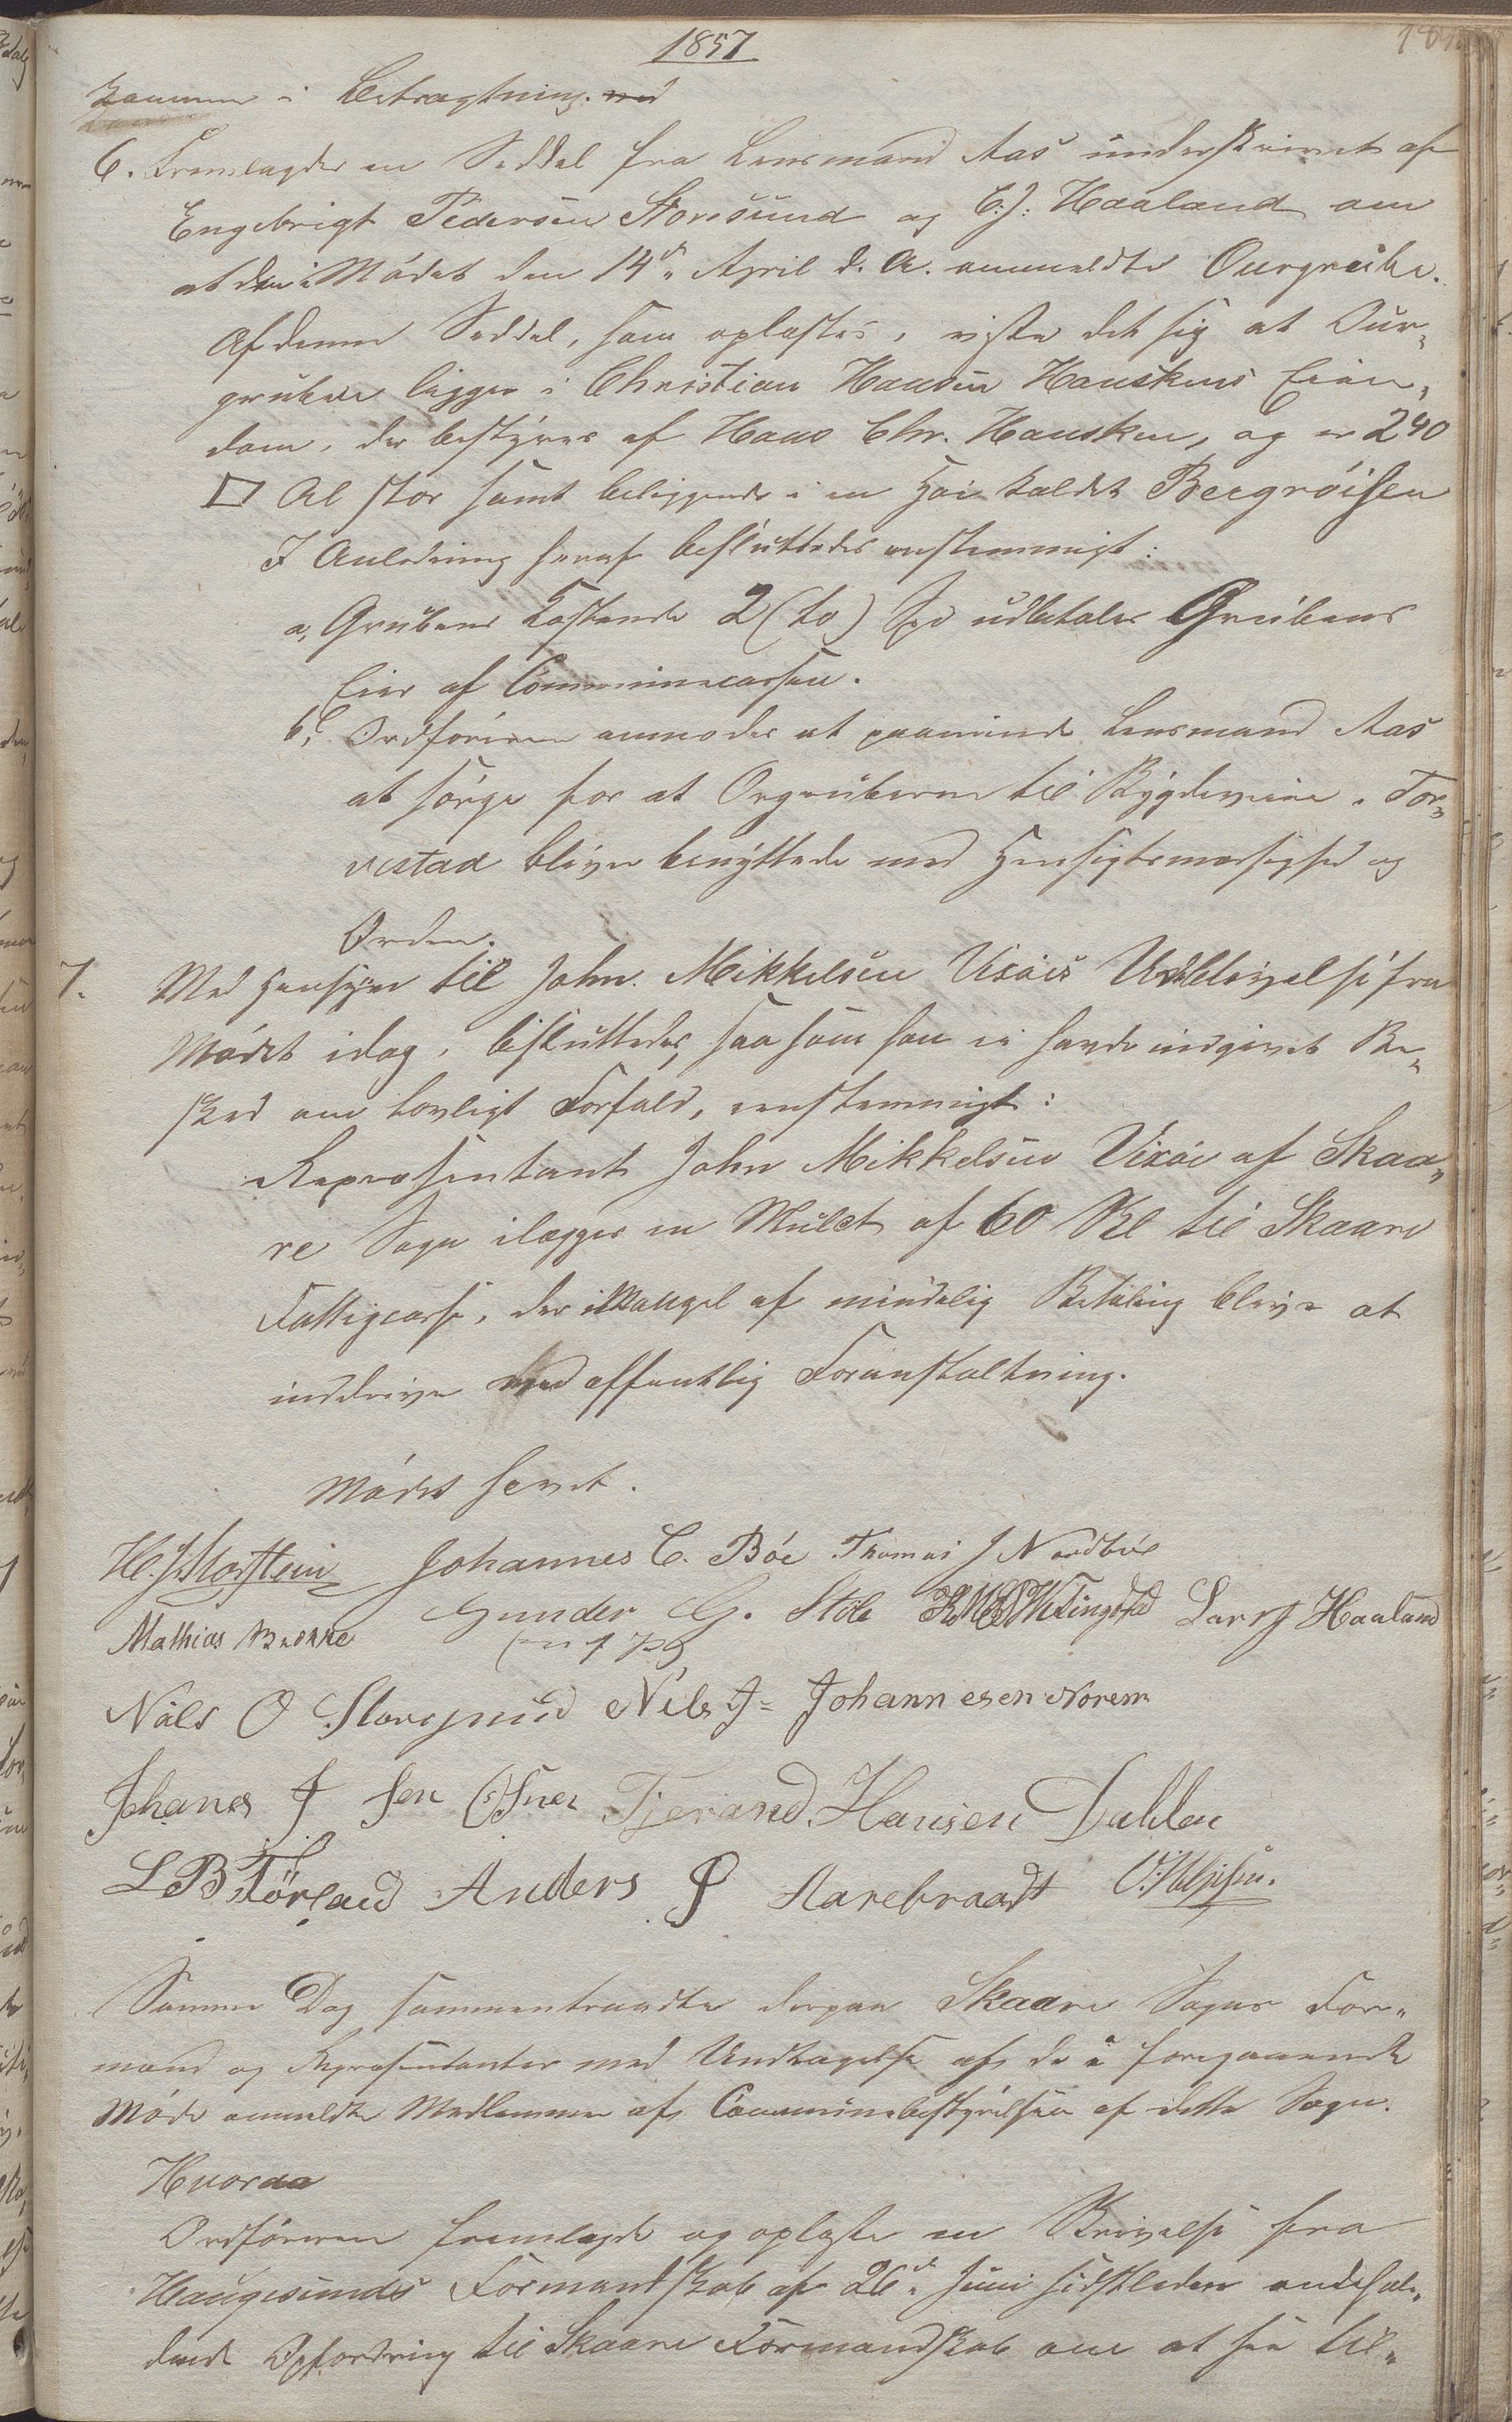 1857
kommer i Betragtning.
6. Fremlagdes en Seddel fra Lensmand Aas underskrevet af
Engebrigt Pedersen Storesund og C. J. Haaland om
at den i Mødet den 14de April d. A. anmeldte Ourgrube.
Af denne Seddel, som oplæstes, viste det sig at Our-
gruben ligger i Christian Hansen Hauskens Eien-
dom, der bestyres af Hans Chr. Hausken, og er 240
□ Al stor samt beliggende i en Høi kaldet Beegrøisen
I Anledning heraf besluttedes eenstemmigt:
a, Grubens Kostende 2 (to) Spd udbetales Grubens
Eier af Communecassen.
b, Ordføreren anmodes at paaminde Lensmand Aas
at sørge for at Orgruberne til Bygdeveiene i Tor-
vestad bliver benyttede med Hensigtsmæssighed og
Orden.
7. Med Hensyn til John Mikkelsen Vixøes Udeblivelse fra
Mødet idag, besluttedes, saasom han ei havde indgivet Be-
sked om lovligt Forfald, eenstemmigt:
Repræsentant John Mikkelsen Vixøe af Skaa-
re Sogn ilægges en Mulct af 60 Sk til Skaare
Fattigcasse, der i Mangel af mindelig Betaling bliver at
inddrive ved offentlig Foranstaltning.
Mødet hævet.
Johannes C. Bøe Thomas J Nordbøe
Mathias Gunder G. Stole Lars J Haaland
Niels O Storesund Nils J. Johannesen Norem
Johanes J sen Tjerand Hansen Dahlen
L B Førland Anders Aarebraadt
Samme Dag sammentraadte derpaa Skaare Sogns For-
mænd og Repræsentanter med Undtagelse af de i foregaaende
Møde anmeldte Medlemmer af Communebestyrelsen af dette Sogn.
Hvorda
Ordføreren fremlagde og oplæste en Skrivelse fra
Haugesunds Formandskab af 26de Juni sidstleden indehol-
dende Opfordring til Skaare Formandskab om at see til-